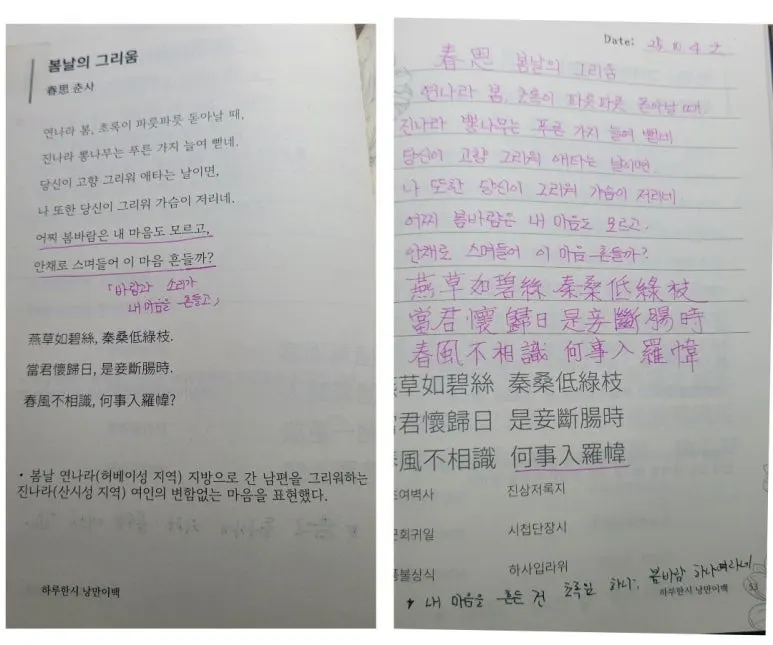 봄날의 그리움
春思 춘사
연나라 봄, 초록이 파릇파릇 돋아날 때,
진나라 뽕나무는 푸른 가지 늘여 뻗네.
당신이 고향 그리워 애타는 날이면,
나 또한 당신이 그리워 가슴이 저리네.
어찌 봄바람은 내 마음도 모르고,
안채로 스며들어 이 마음 흔들까?
「바람과 소리가
내 마음을 흔들고」
燕草如碧絲, 秦桑低綠枝.
當君懷歸日, 是妾斷腸時.
春風不相識, 何事入羅幃?
• 봄날 연나라(허베이성 지역) 지방으로 간 남편을 그리워하는
진나라(산시성 지역) 여인의 변함없는 마음을 표현했다.
하루한시 낭만이백
Date:
春思 봄날의 그리움
연나라 봄, 초록이 파릇파릇 돋아날 때,
진나라 뽕나무는 푸른 가지 늘여 뻗네
당신이 고향 그리워 애타는 날이면,
나 또한 당신이 그리워 가슴이 저리네.
어찌 봄바람은 내 마음도 모르고,
안채로 스며들어 이 마음 흔들까?
燕草如碧絲 秦桑低綠枝
當君懷歸日 是妾斷腸時
春風不相識 何事入羅幃
草如碧絲 秦桑低綠枝
君懷歸日 是妾斷腸時
風不相識 何事入羅幃
여벽사 진상저록지
회귀일 시첩단장시
불상식 하사입라위
내 마음을 흔든 건 초록일 하니, 봄바람
하루한시 낭만이백